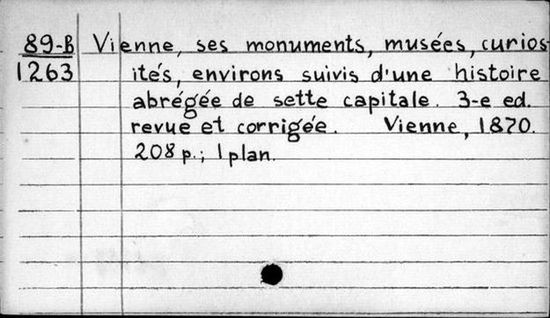 89-B Vienne, ses monuments, musées, curios-
1263 ités, environs suivis d'une histoire
abrégée de sette capitale. 3-e ed.
revue et corrigée. Vienne, 1870.
208 p.; 1 plan.